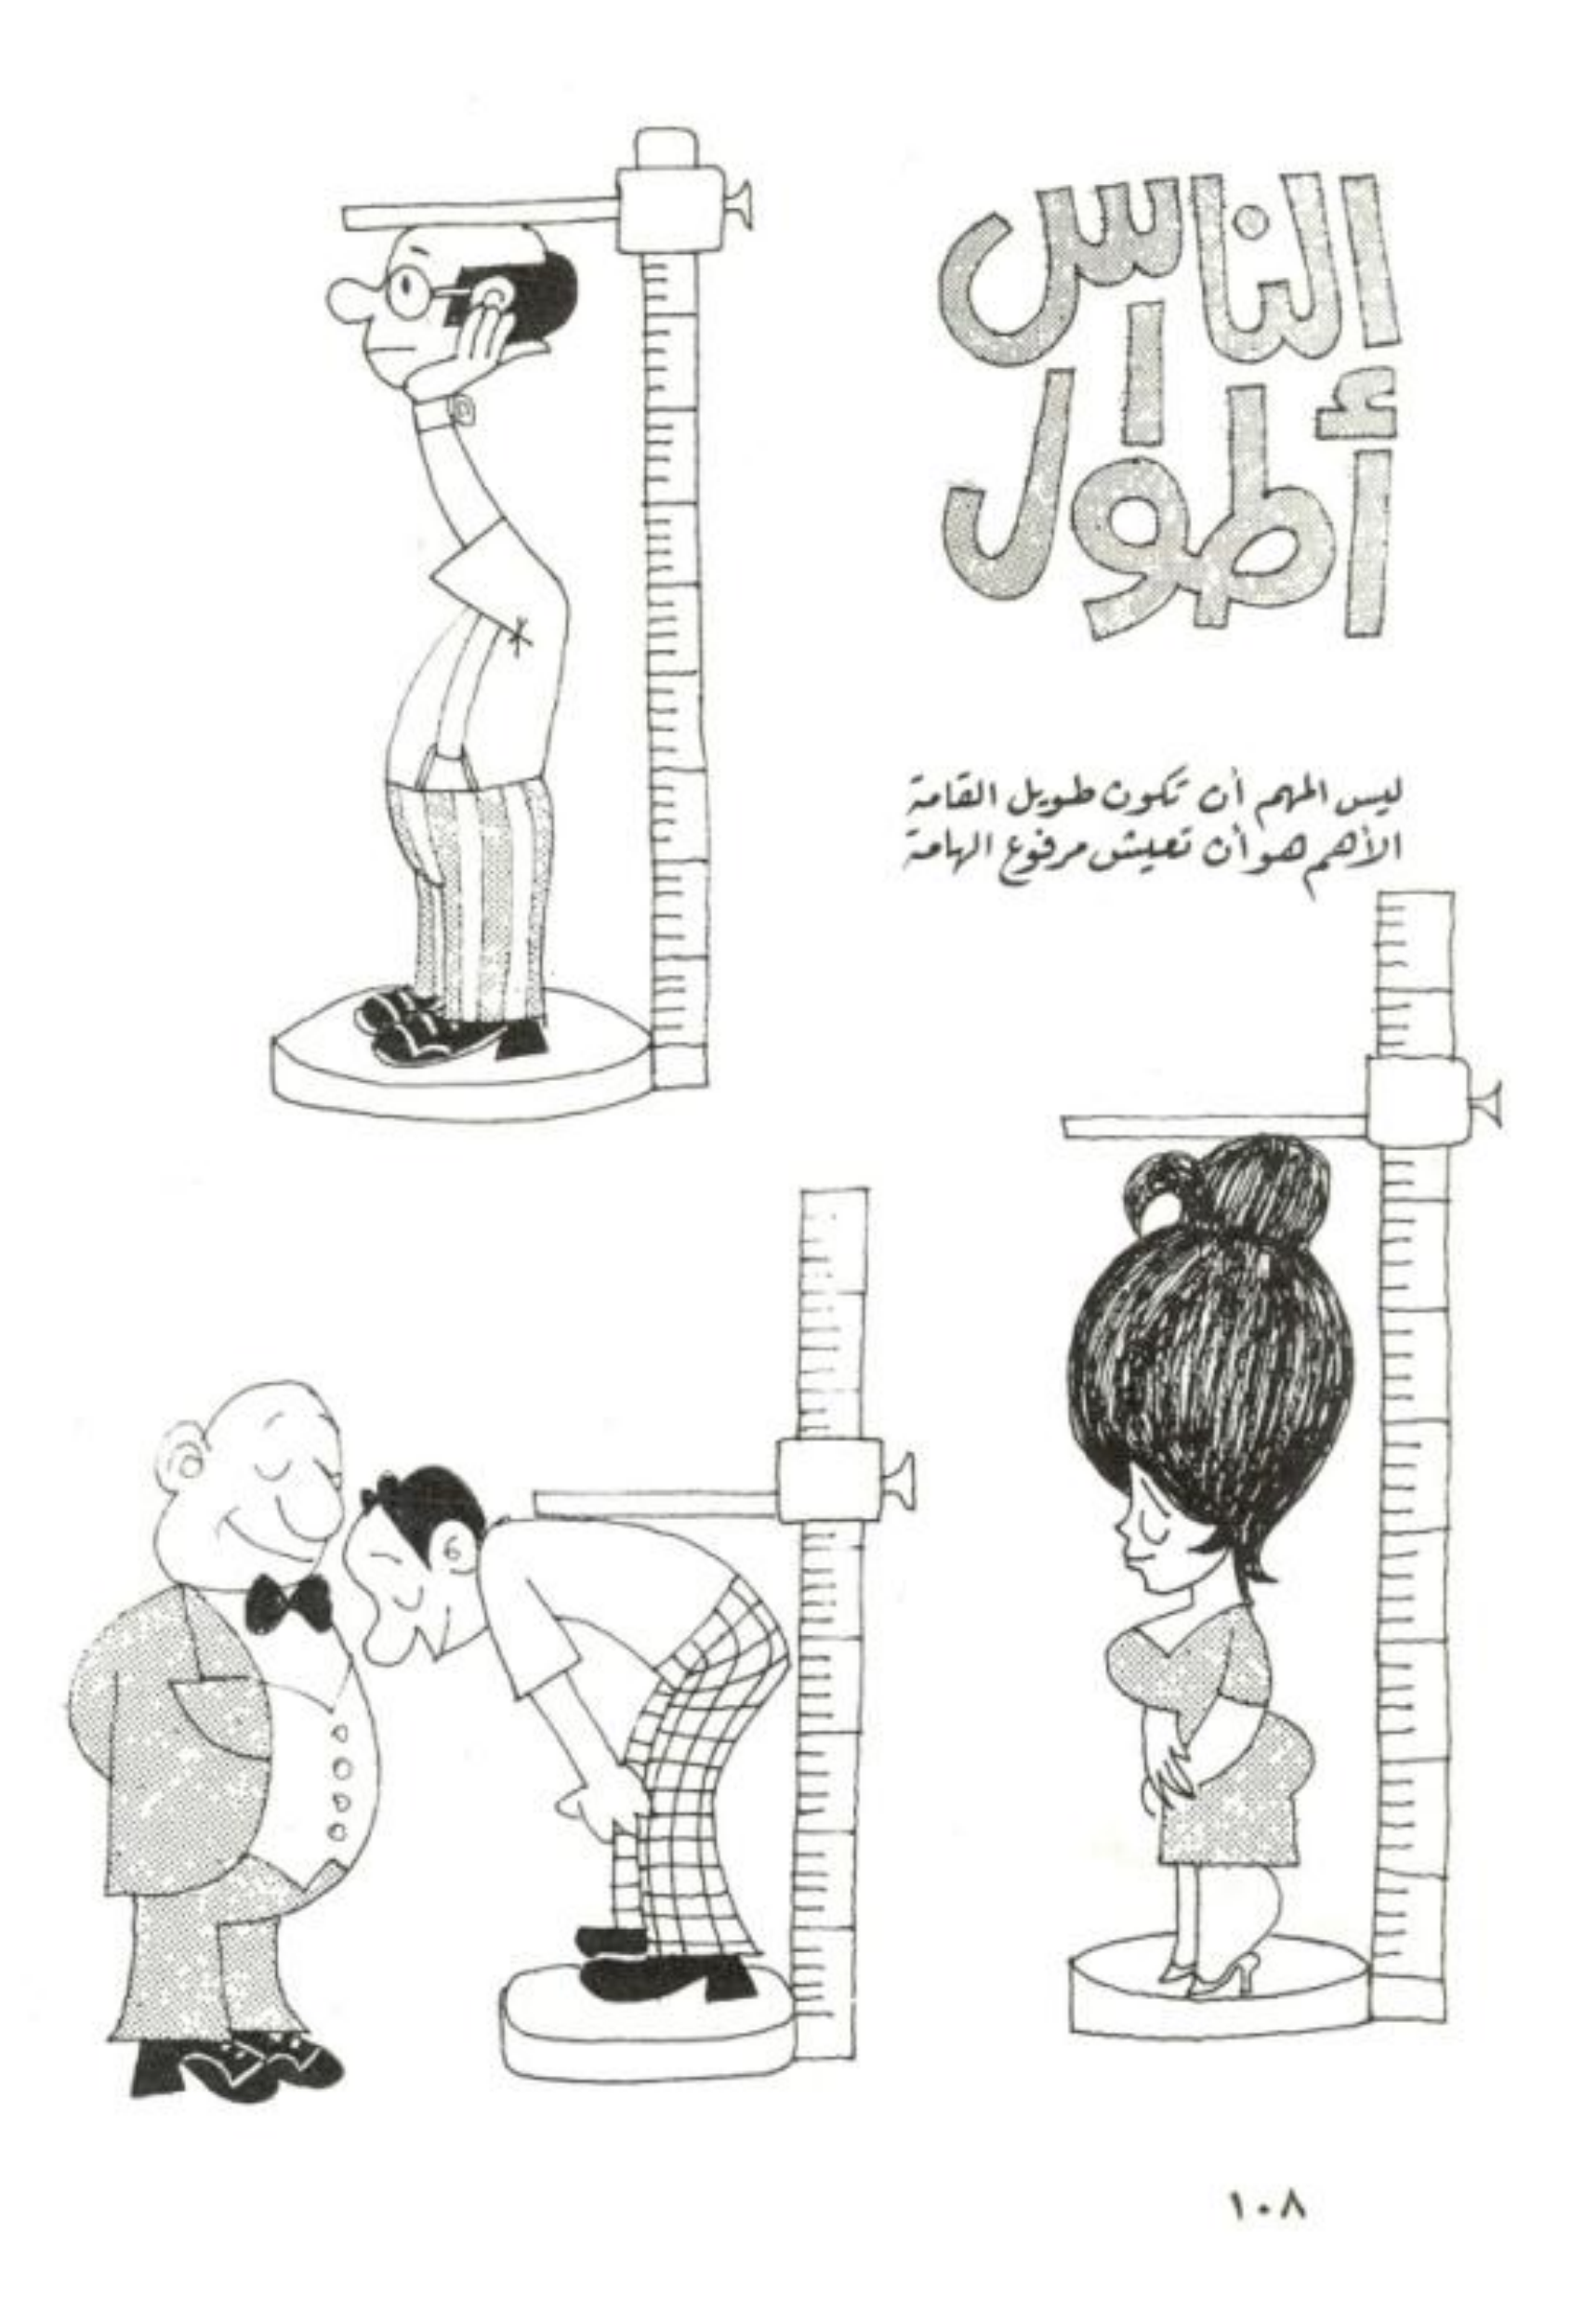 الناس
أطوال
ليس المهم أن تكون طويل القامة
الأهم هو أن تعيش مرفوع الهامة
١٠٨